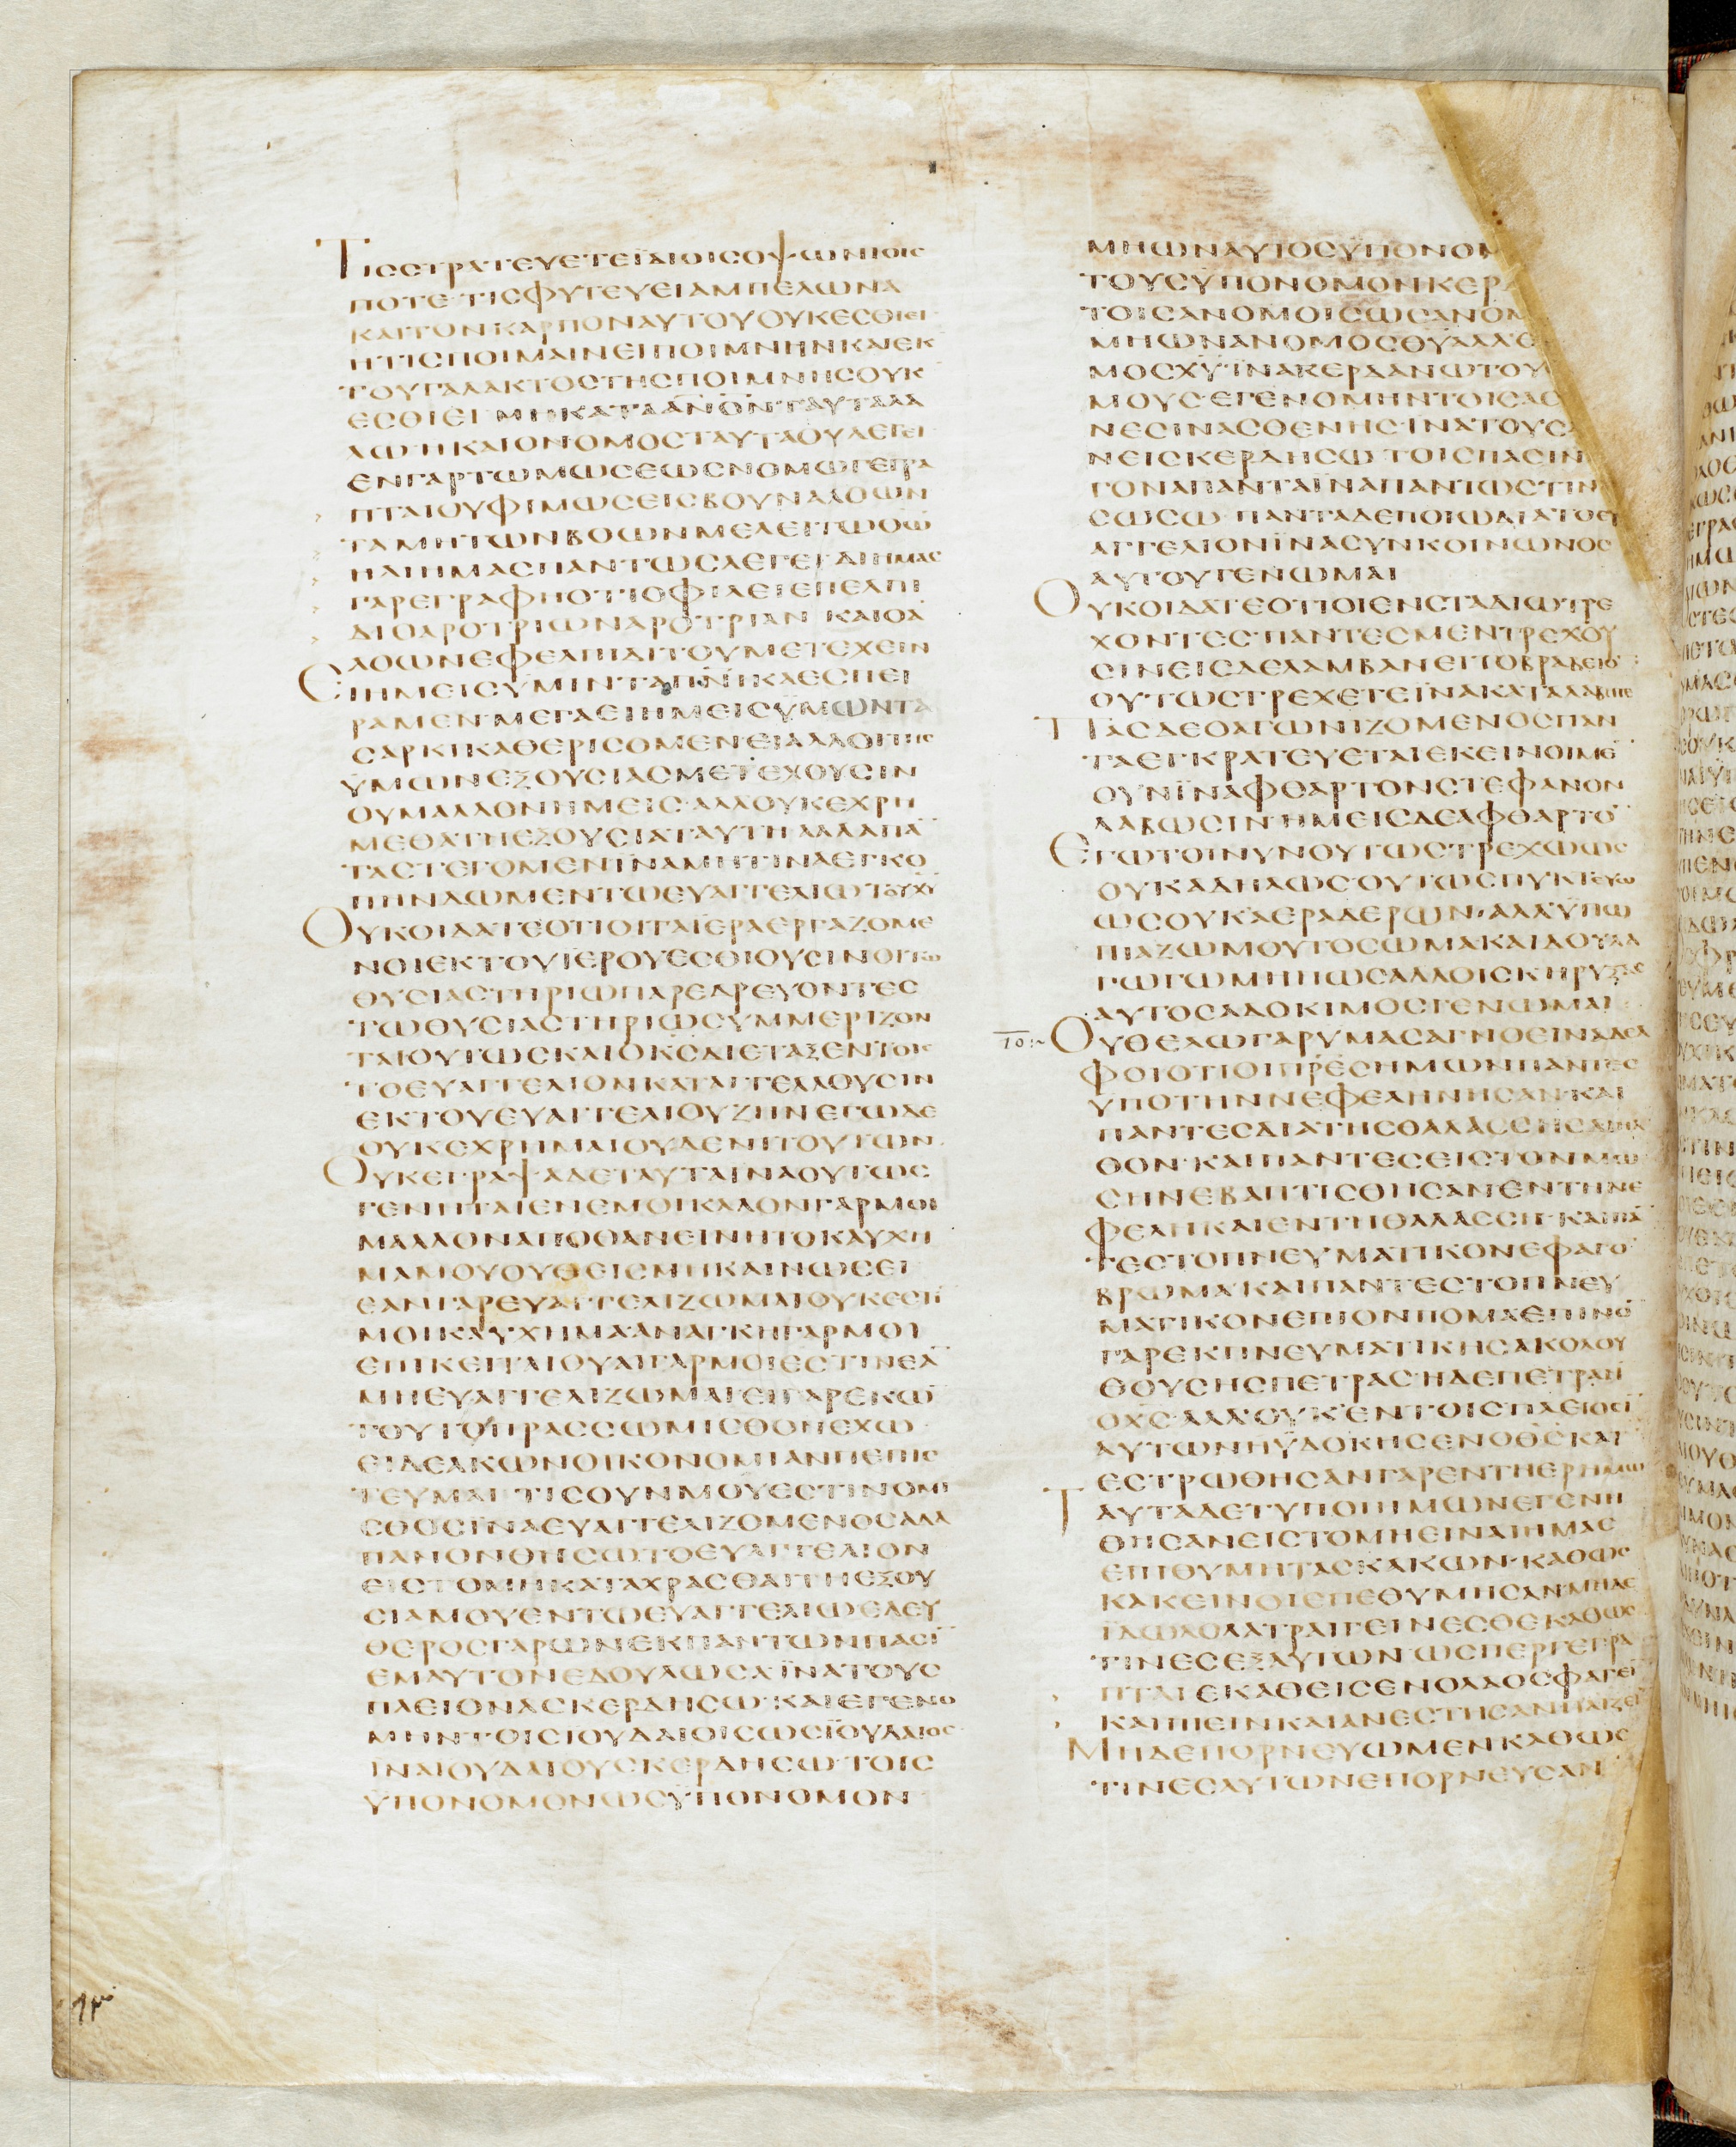 ΤΙССΤΡΑΤΕΥΕΤΕΪΔΙΟΙСΟΨΩΝΙΟΙС
ΠΟΤΕ·ΤΙСΦΥΤΕΥΕΙΑΜΠΕΛΩΝΑ
ΚΑΙΤΟΝΚΑΡΠΟΝΑΥΤΟΥΟΥΚΕСΘΙΕΙ·
ΗΤΙСΠΟΙΜΑΙΝΕΙΠΟΙΜΝΗΝΚΑΙΕΚ
ΤΟΥΓΑΛΑΚΤΟСΤΗСΠΟΙΜΝΗСΟΥΚ
ΕСΘΙΕΙ ΜΗΚΑΤΑΑΝΟΝΤΑΥΤΑΛΑ
ΛΩ·ΗΚΑΙΟΝΟΜΟСΤΑΥΤΑΟΥΛΕΓΕΙ·
ΕΝΓΑΡΤΩΜΩСΕΩСΝΟΜΩΓΕΓΡΑ
ΠΤΑΙΟΥΦΙΜΩСΕΙСΒΟΥΝΑΛΟΩΝ
ΤΑΜΗΤΩΝΒΟΩΝΜΕΛΕΙΤΩΘΩ
ΗΔΙΗΜΑСΠΑΝΤΩСΛΕΓΕΙ·ΔΙΗΜΑС
ΓΑΡΕΓΡΑΦΗΟΤΙΟΦΙΛΕΙΕΠΕΛΠΙ
ΔΙΟΑΡΟΤΡΙΩΝΑΡΟΤΡΙΑΝ ΚΑΙΟΑ
ΛΟΩΝΕΦΕΛΠΙΔΙΤΟΥΜΕΤΕΧΕΙΝ
ΕΙΗΜΕΙСΥΜΙΝΤΑΠΝΙΚΑΕСΠΕΙ
ΡΑΜΕΝ·ΜΕΓΑΕΙΗΜΕΙСΫΜΩΝΤΑ
СΑΡΚΙΚΑΘΕΡΙСΟΜΕΝ·ΕΙΑΛΛΟΙΤΗС
ΫΜΩΝΕΞΟΥСΙΑСΜΕΤΕΧΟΥСΙΝ
ΟΥΜΑΛΛΟΝΗΜΕΙС·ΑΛΛΟΥΚΕΧΡΗ
ΜΕΘΑΤΗΕΞΟΥСΙΑΤΑΥΤΗ·ΑΛΛΑΠΑ
ΤΑСΤΕΓΟΜΕΝΪΝΑΜΗΤΙΝΑΕΓΚΟ
ΠΗΝΔΩΜΕΝΤΩΕΥΑΓΓΕΛΙΩΤΟΥΧΥ
ΟΥΚΟΙΔΑΤΕΟΤΙΟΙΤΑΙΕΡΑΕΡΓΑΖΟΜΕ
ΝΟΙΕΚΤΟΥΙΕΡΟΥΕСΘΙΟΥСΙΝΟΙΤΩ
ΘΥСΙΑСΤΗΡΙΩΠΑΡΕΔΡΕΥΟΝΤΕС
ΤΩΘΥСΙΑСΤΗΡΙΩСΥΜΜΕΡΙΖΟΝ
ΤΑΙΟΥΤΩСΚΑΙΟΚСΔΙΕΤΑΞΕΝΤΟΙС
ΤΟΕΥΑΓΓΕΛΙΟΝΚΑΤΑΓΓΕΛΛΟΥСΙΝ
ΕΚΤΟΥΕΥΑΓΓΕΛΙΟΥΖΗΝ ΕΓΩΔΕ
ΟΥΚΕΧΡΗΜΑΙΟΥΔΕΝΙΤΟΥΤΩΝ·
ΟΥΚΕΓΡΑΨΑΔΕΤΑΥΤΑΙΝΑΟΥΤΩС
ΓΕΝΗΤΑΙΕΝΕΜΟΙΚΑΛΟΝΓΑΡΜΟΙ
ΜΑΛΛΟΝΑΠΟΘΑΝΕΙΝΗΤΟΚΑΥΧΗ
ΜΑΜΟΥΟΥΘΕΙСΜΗΚΑΙΝΩСΕΙ
ΕΑΝΓΑΡΕΥΑΓΓΕΛΙΖΩΜΑΙΟΥΚΕСΤΙ
ΜΟΙΚΑΥΧΗΜΑ·ΑΝΑΓΚΗΓΑΡΜΟΙ
ΕΠΙΚΕΙΤΑΙΟΥΑΙΓΑΡΜΟΙΕСΤΙΝΕΑ
ΜΗΕΥΑΓΓΕΛΙΖΩΜΑΙ·ΕΙΓΑΡΕΚΩ
ΤΟΥΤΟΠΡΑССΩΜΙСΘΟΝΕΧΩ·
ΕΙΔΕΑΚΩΝΟΙΚΟΝΟΜΙΑΝΠΕΠΙС
ΤΕΥΜΑΙ ΤΙСΟΥΝΜΟΥΕСΤΙΝΟΜΙ
СΘΟСΙΝΑΕΥΑΓΓΕΛΙΖΟΜΕΝΟСΑΔΑ
ΠΑΝΟΝΘΗСΩΤΟΕΥΑΓΓΕΛΙΟΝ
ΕΙСΤΟΜΗΚΑΤΑΧΡΑСΘΑΙΤΗΕΞΟΥ
СΙΑΜΟΥΕΝΤΩΕΥΑΓΓΕΛΙΩΕΛΕΥ
ΘΕΡΟСΓΑΡΩΝΕΚΠΑΝΤΩΝΠΑСΙ
ΕΜΑΥΤΟΝΕΔΟΥΛΩСΑ·ΪΝΑΤΟΥС
ΠΛΕΙΟΝΑСΚΕΡΔΗСΩ·ΚΑΙΕΓΕΝΟ
ΜΗΝΤΟΙСΙΟΥΔΑΙΟΙСΩСΪΟΥΔΑΙΟС·
ΪΝΑΙΟΥΔΑΙΟΥСΚΕΡΔΗСΩ·ΤΟΙС
ΫΠΟΝΟΜΟΝΩСΫΠΟΝΟΜΟΝ·
ΜΗΩΝΑΥΤΟСΫΠΟΝΟΜ
ΤΟΥСΫΠΟΝΟΜΟΝΚΕΡΔ
ΤΟΙСΑΝΟΜΟΙСΩСΑΝΟΜ
ΜΗΩΝΑΝΟΜΟСΘΥΑΛΛΕ
ΜΟСΧΥ·ΪΝΑΚΕΡΔΑΝΩΤΟΥ
ΜΟΥС·ΕΓΕΝΟΜΗΝΤΟΙСΑС
ΝΕСΙΝΑСΘΕΝΗС·ΙΝΑΤΟΥСΑ
ΝΕΙСΚΕΡΔΗСΩ ΤΟΙСΠΑСΙΝ
ΓΟΝΑΠΑΝΤΑΪΝΑΠΑΝΤΩСΤΙΝ
СΩСΩ·ΠΑΝΤΑΔΕΠΟΙΩΔΙΑΤΟΕΥ
ΑΓΓΕΛΙΟΝΪΝΑСΥΝΚΟΙΝΩΝΟС
ΑΥΤΟΥΓΕΝΩΜΑΙ
ΟΥΚΟΙΔΑΤΕΟΤΙΟΙΕΝСΤΑΔΙΩΤΡΕ
ΧΟΝΤΕС·ΠΑΝΤΕСΜΕΝΤΡΕΧΟΥ
СΙΝΕΙСΔΕΛΑΜΒΑΝΕΙΤΟΒΡΑΒΕΙΟ
ΟΥΤΩСΤΡΕΧΕΤΕΪΝΑΚΑΤΑΛΑΒΗΤΕ
ΠΑСΔΕΟΑΓΩΝΙΖΟΜΕΝΟСΠΑΝ
ΤΑΕΓΚΡΑΤΕΥΕΤΑΙΕΚΕΙΝΟΙΜΕ
ΟΥΝΪΝΑΦΘΑΡΤΟΝСΤΕΦΑΝΟΝ
ΛΑΒΩСΙΝ·ΗΜΕΙСΔΕΑΦΘΑΡΤΟ
ΕΓΩΤΟΙΝΥΝΟΥΤΩСΤΡΕΧΩΩС
ΟΥΚΑΔΗΛΩСΟΥΤΩСΠΥΚΤΕΥΩ
ΩСΟΥΚΑΕΡΑΔΕΡΩΝ·ΑΛΛΫΠΩ
ΠΙΑΖΩΜΟΥΤΟСΩΜΑΚΑΙΔΟΥΛΑ
ΓΩΓΩΜΗΠΩСΑΛΛΟΙСΚΗΡΥΞΑС
ΑΥΤΟСΑΔΟΚΙΜΟСΓΕΝΩΜΑΙ
10:~ ΟΥΘΕΛΩΓΑΡΥΜΑСΑΓΝΟΕΙΝΑΔΕΛ
ΦΟΙΟΤΙΟΙΠΡΕСΗΜΩΝΠΑΝΤΕС
ΥΠΟΤΗΝΝΕΦΕΛΗΝΗСΑΝ·ΚΑΙ
ΠΑΝΤΕСΔΙΑΤΗСΘΑΛΑССΗСΔΙΗΛ
ΘΟΝ·ΚΑΙΠΑΝΤΕСΕΙСΤΟΝΜΩ
СΗΝΕΒΑΠΤΙСΘΗСΑΝΕΝΤΗΝΕ
ΦΕΛΗΚΑΙΕΝΤΗΘΑΛΑССΗ·ΚΑΙΠΑ
ΤΕСΤΟΠΝΕΥΜΑΤΙΚΟΝΕΦΑΓΟ
ΒΡΩΜΑ·ΚΑΙΠΑΝΤΕСΤΟΠΝΕΥ
ΜΑΤΙΚΟΝΕΠΙΟΝΠΟΜΑΕΠΙΝΟ
ΓΑΡΕΚΠΝΕΥΜΑΤΙΚΗСΑΚΟΛΟΥ
ΘΟΥСΗСΠΕΤΡΑС·ΗΔΕΠΕΤΡΑΗ
ΟΧС·ΑΛΛΟΥΚΕΝΤΟΙСΠΛΕΙΟСΙ
ΑΥΤΩΝΗΫΔΟΚΗСΕΝΟΘС·ΚΑΤ
ΕСΤΡΩΘΗСΑΝΓΑΡΕΝΤΗΕΡΗΜΩ
ΤΑΥΤΑΔΕΤΥΠΟΙΗΜΩΝΕΓΕΝΗ
ΘΗСΑΝΕΙСΤΟΜΗΕΙΝΑΙΗΜΑС
ΕΠΙΘΥΜΗΤΑСΚΑΚΩΝ·ΚΑΘΩС
ΚΑΚΕΙΝΟΙΕΠΕΘΥΜΗСΑΝ·ΜΗΔΕ
ΪΔΩΛΟΛΑΤΡΑΙΓΕΙΝΕСΘΕΚΑΘΩС
ΤΙΝΕСΕΞΑΥΤΩΝ·ΩСΠΕΡΓΕΓΡΑ
ΠΤΑΙΕΚΑΘΕΙСΕΝΟΛΑΟСΦΑΓΕΙ
ΚΑΙΠΕΙΝΚΑΙΑΝΕСΤΗСΑΝΠΑΙΖΕΙ
ΜΗΔΕΠΟΡΝΕΥΩΜΕΝΚΑΘΩС
ΤΙΝΕСΑΥΤΩΝΕΠΟΡΝΕΥСΑΝ